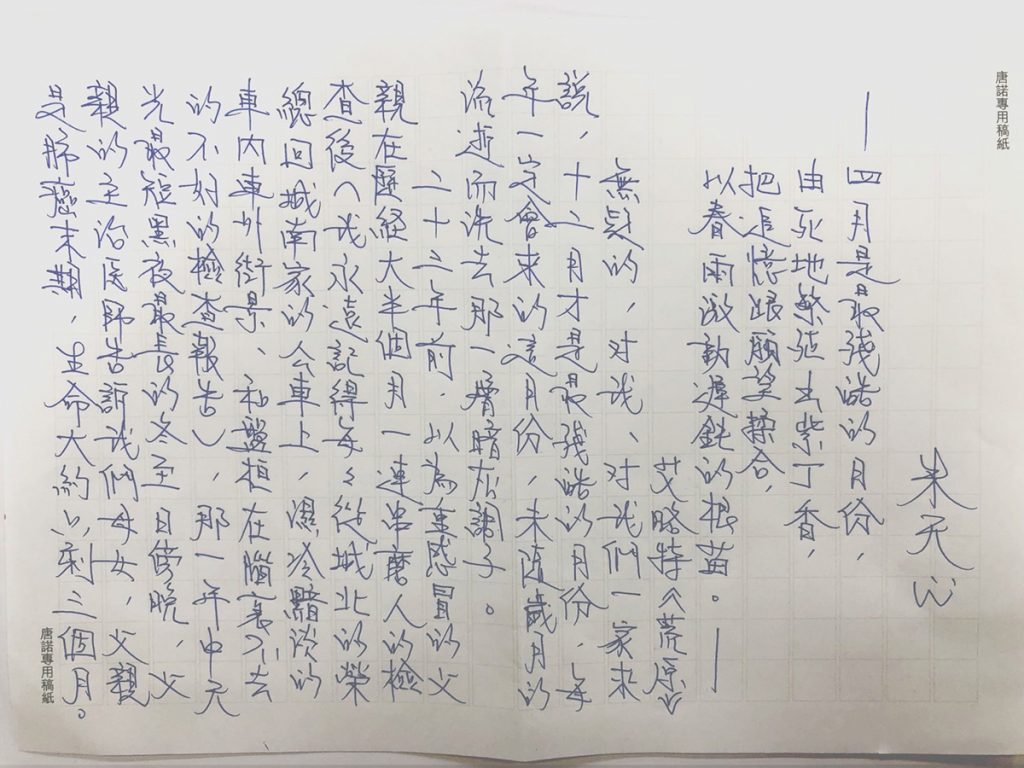 唐諾專用稿紙
朱天心
—四月是最殘酷的月份，
由死地繁殖出紫丁香，
把追憶跟願望揉合，
以春雨激動遲鈍的根苗。—
艾略特《荒原》
無疑的，对我、对我們一家來
說，十二月才是最殘酷的月份，每
年一定會來的這月份，未隨歲月的
流逝而洗去那一層暗灰調子。
二十二年前，以為重感冒的父
親在歷經大半個月一連串磨人的檢
查後（我永遠記得每々從城北的榮
總回城南家的公車上，濕冷黯淡的
車內車外街景、和盤桓在腦裏不去
的不好的檢查報告），那一年中天
光最短黑夜最長的冬至日傍晚，父
親的主治医師告訴我們母女，父親
是肺癌末期，生命大約只剩三個月。
唐諾專用稿紙